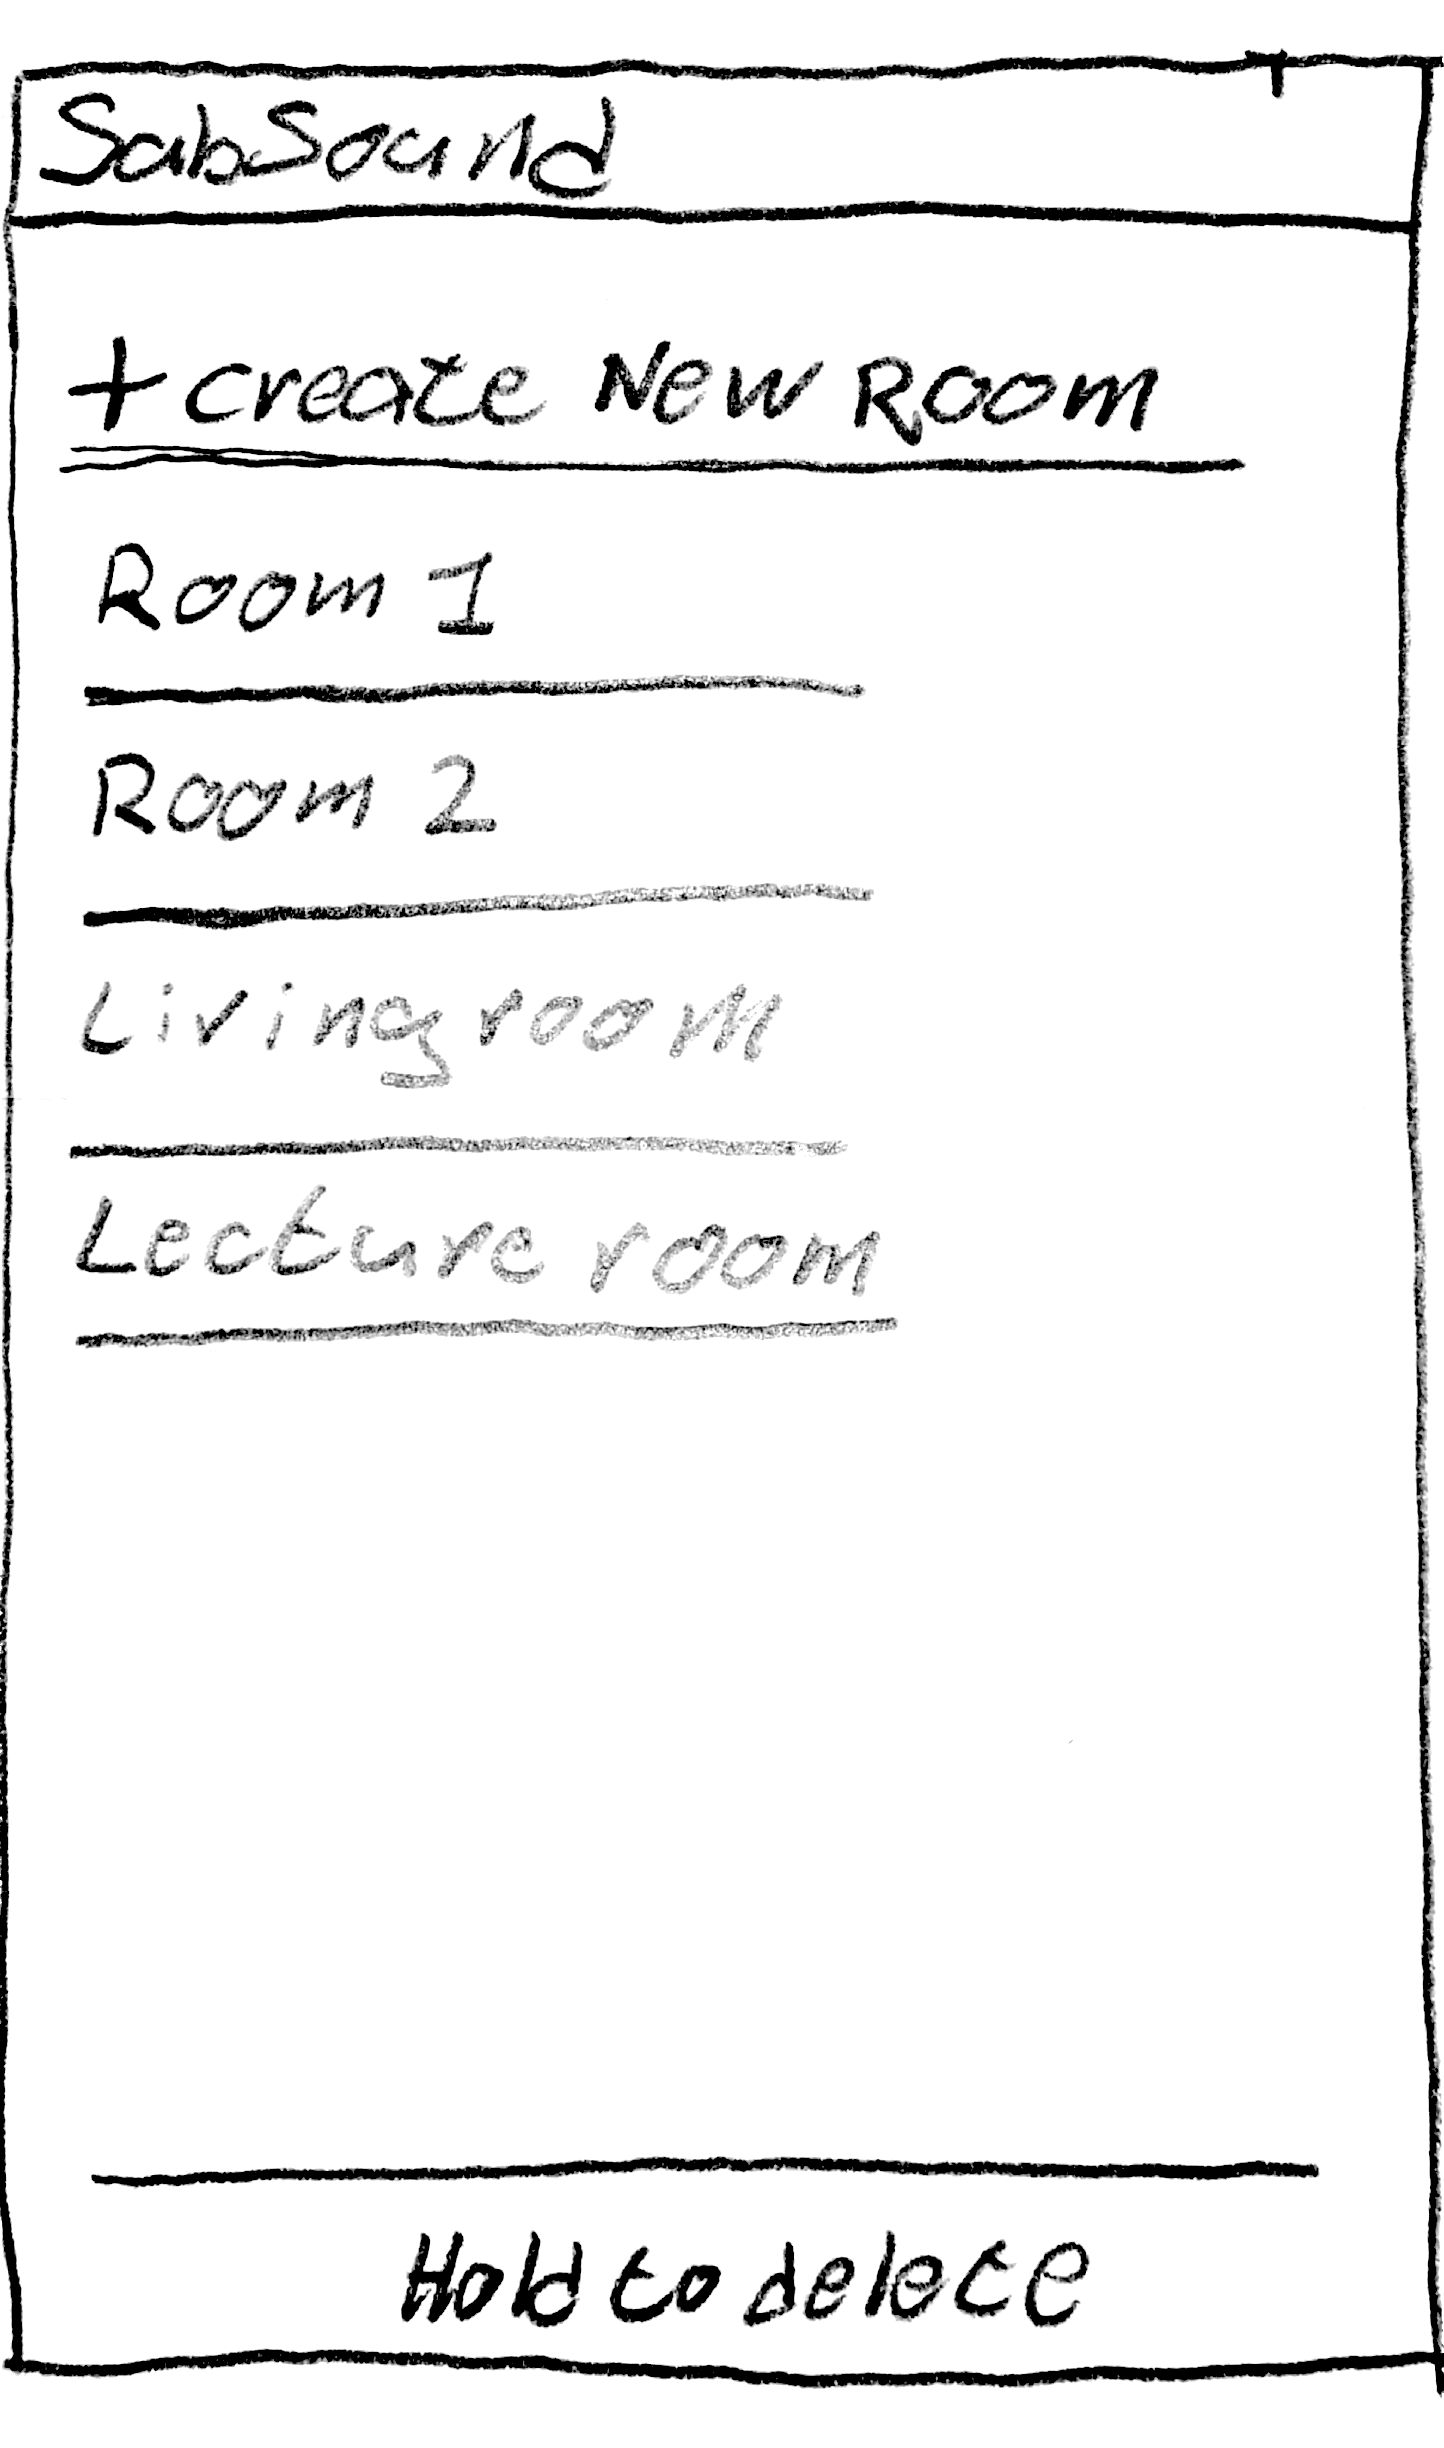 SubSound
+ create New Room
Room 1
Room 2
Living room
Lecture room
Hold to delete